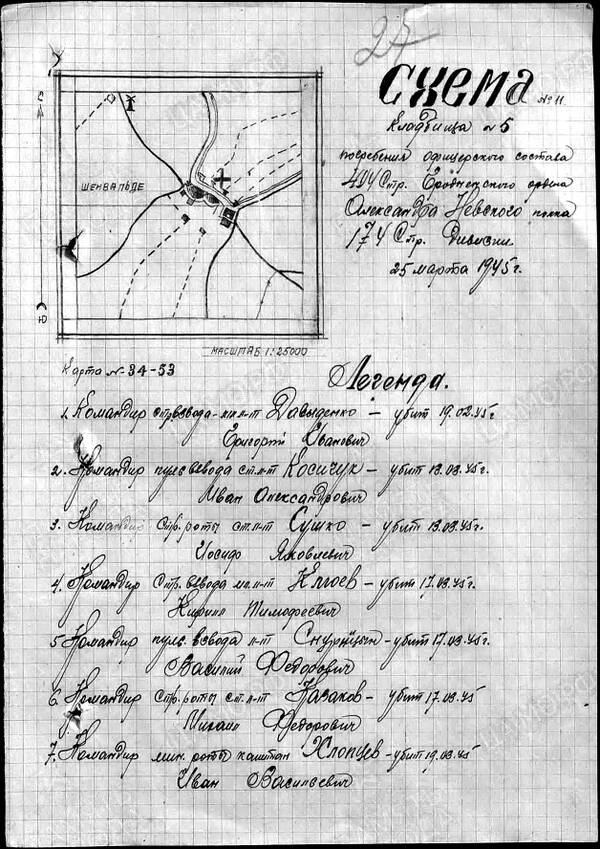 25
Схема №11
Кладбища №5
погребения офицерского состава
494 Стр. Гродненского ордена
Александра Невского полка
174 Стр. Дивизии
25 марта 1945г.
С
ШЕНВАЛЬДЕ
Ю
МАСШТАБ 1:25000
Карта № 34-53
Легенда.
1. Командир стр. взвода - мл. л-т Давыденко — убит 19.02.45г.
Григорий Иванович
2. Командир пул. взвода ст. л-т Косичук — убит 13.03.45г.
Иван Александрович
3. Командир стр. роты ст. л-т Сушко — убит 13.03.45г.
Иосиф Яковлевич
4. Командир стр. взвода мл. л-т Клюев — убит 17.03.45г.
Кирилл Тимофеевич
5 Командир пул. взвода л-т — убит 17.03.45г.
Василий Федорович
6. Командир стр. роты ст. л-т Казаков — убит 17.03.45
Михаил Федорович
7. Командир мин. роты капитан Хлопцев — убит 19.03.45
Иван Васильевич